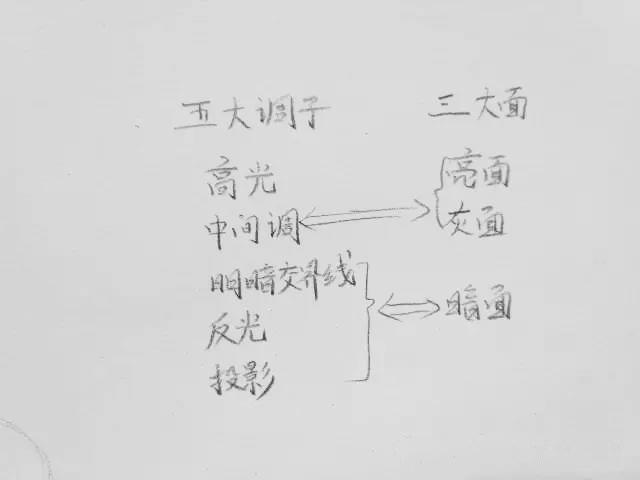 五大调子
高光
中间调
明暗交界线
反光
投影
三大面
亮面
灰面
暗面